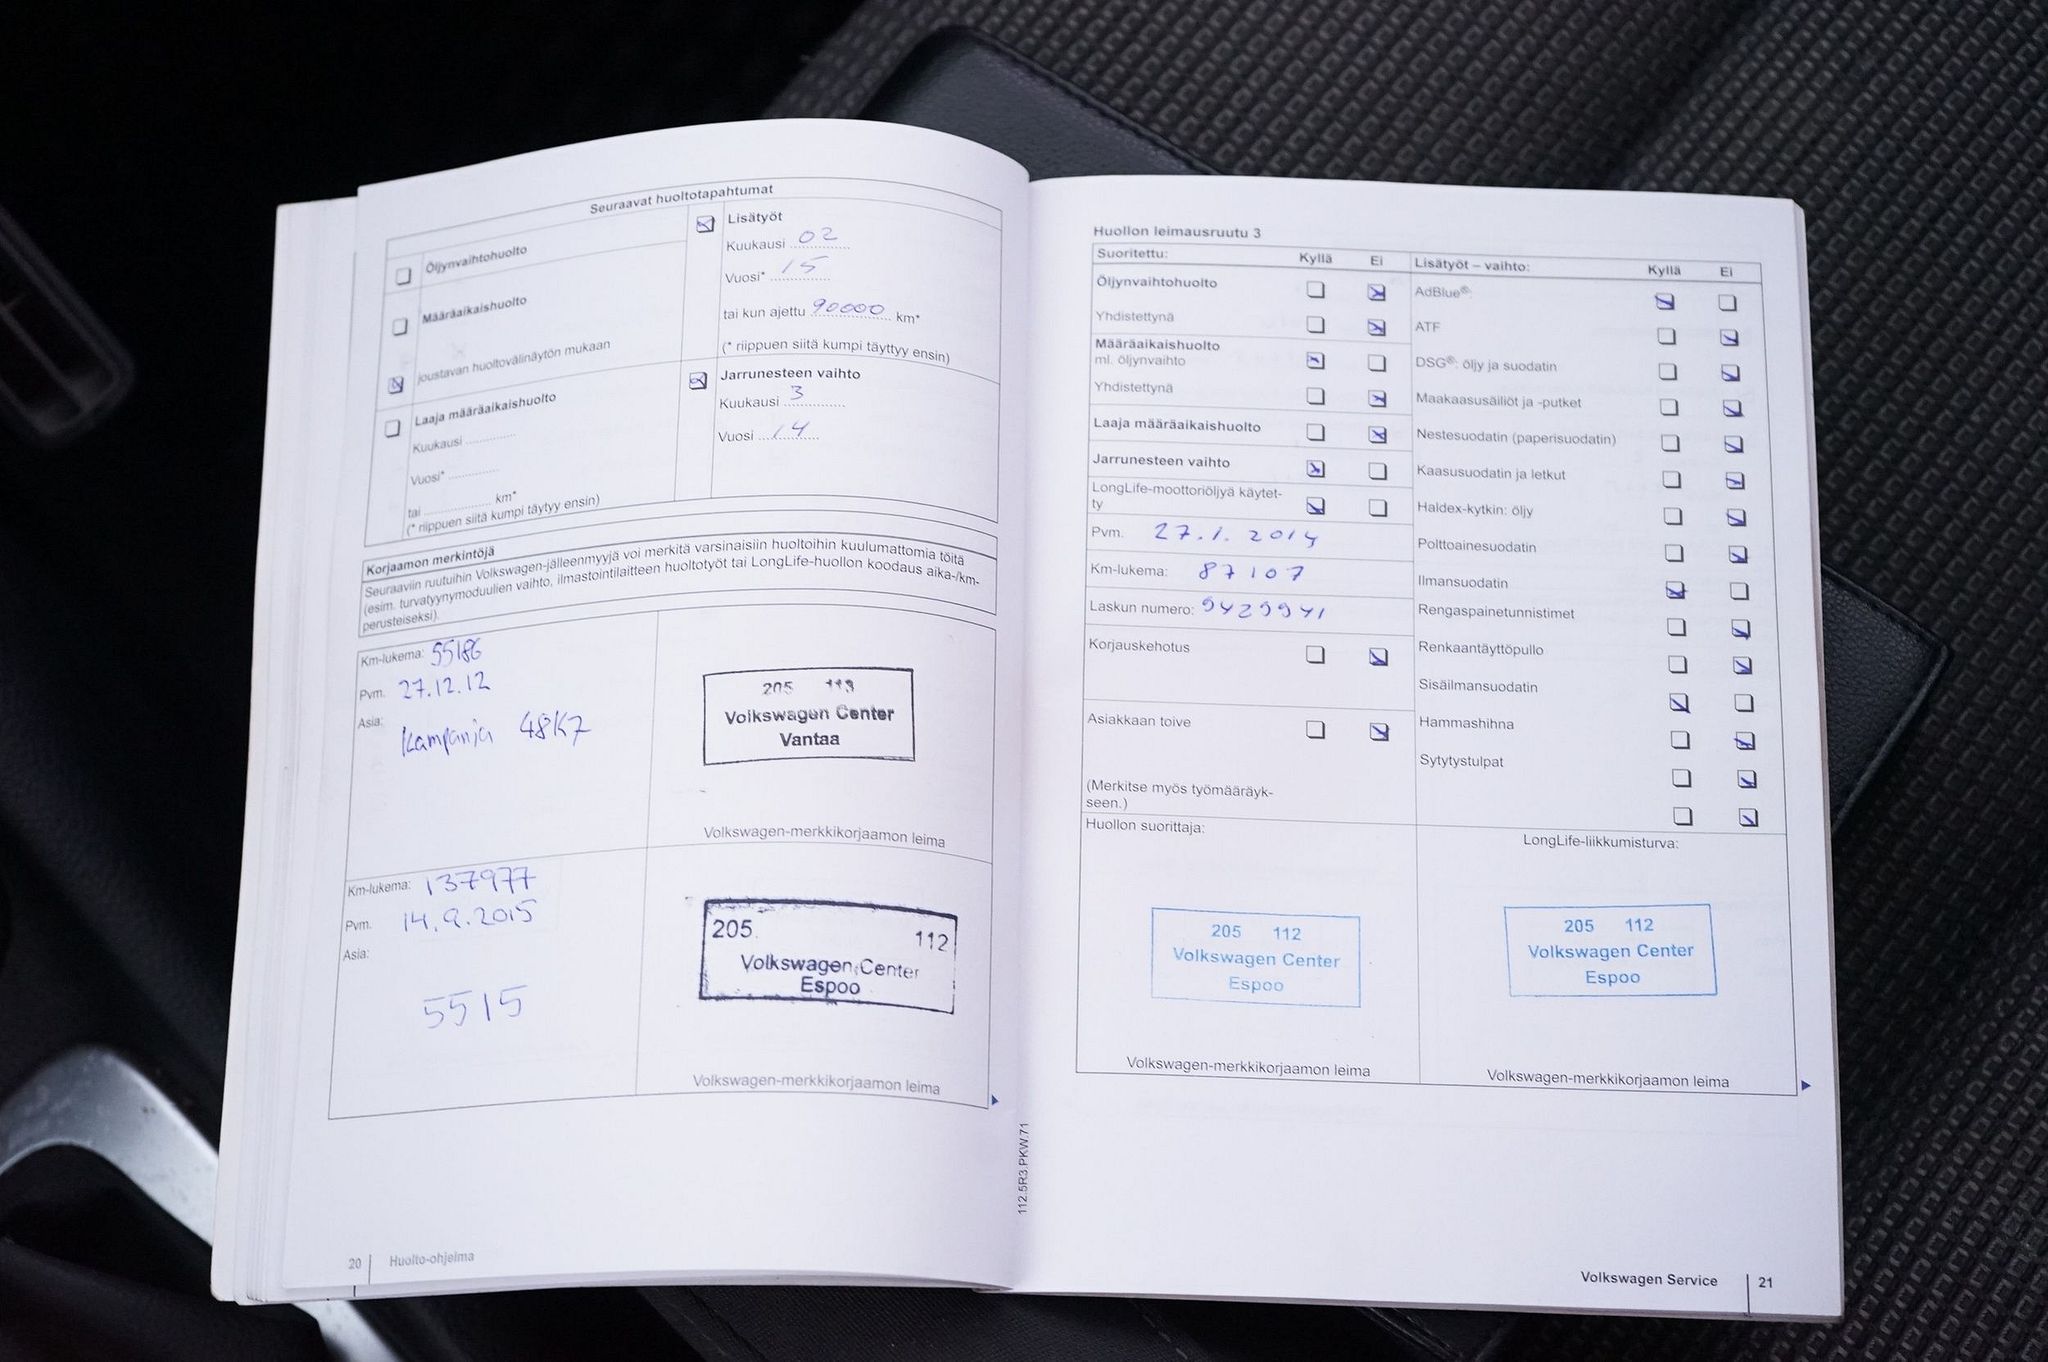 Seuraavat huoltotapahtumat
Öljynvaihtohuolto
Määräaikaishuolto
joustavan huoltovälinäytön mukaan
Laaja määräaikaishuolto
Kuukausi ...............
Vuosi* ..............
tai .................... km*
(* riippuen siitä kumpi täytyy ensin)
Lisätyöt
Kuukausi 02
Vuosi* 15
tai kun ajettu 90000 km*
(* riippuen siitä kumpi täyttyy ensin)
Jarrunesteen vaihto
Kuukausi 3
Vuosi 14
Korjaamon merkintöjä
Seuraaviin ruutuihin Volkswagen-jälleenmyyjä voi merkitä varsinaisiin huoltoihin kuulumattomia töitä
(esim. turvatyynymoduulien vaihto, ilmastointilaitteen huoltotyöt tai LongLife-huollon koodaus aika-/km-
perusteiseksi).
Km-lukema: 55186
Pvm. 27.12.12
Asia: Kampanja 48K7
205 113
Volkswagen Center
Vantaa
Volkswagen-merkkikorjaamon leima
Km-lukema: 137977
Pvm. 14.9.2015
Asia:
5515
205 112
Volkswagen Center
Espoo
Volkswagen-merkkikorjaamon leima
20 Huolto-ohjelma
112.5R3.PKW.71
Huollon leimausruutu 3
Suoritettu: Kyllä Ei
Öljynvaihtohuolto
Yhdistettynä
Määräaikaishuolto
ml. öljynvaihto
Yhdistettynä
Laaja määräaikaishuolto
Jarrunesteen vaihto
LongLife-moottoriöljyä käytet-
ty
Pvm. 27.1.2014
Km-lukema: 87107
Laskun numero: 9429941
Korjauskehotus
Asiakkaan toive
(Merkitse myös työmääräyk-
seen.)
Lisätyöt – vaihto: Kyllä Ei
AdBlue®:
ATF
DSG®: öljy ja suodatin
Maakaasusäiliöt ja -putket
Nestesuodatin (paperisuodatin)
Kaasusuodatin ja letkut
Haldex-kytkin: öljy
Polttoainesuodatin
Ilmansuodatin
Rengaspainetunnistimet
Renkaantäyttöpullo
Sisäilmansuodatin
Hammashihna
Sytytystulpat
Huollon suorittaja:
205 112
Volkswagen Center
Espoo
Volkswagen-merkkikorjaamon leima
LongLife-liikkumisturva:
205 112
Volkswagen Center
Espoo
Volkswagen-merkkikorjaamon leima
Volkswagen Service 21